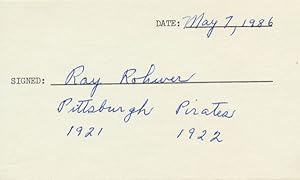 DATE: May 7, 1986
SIGNED: Ray Rohwer
Pittsburgh Pirates
1921 1922